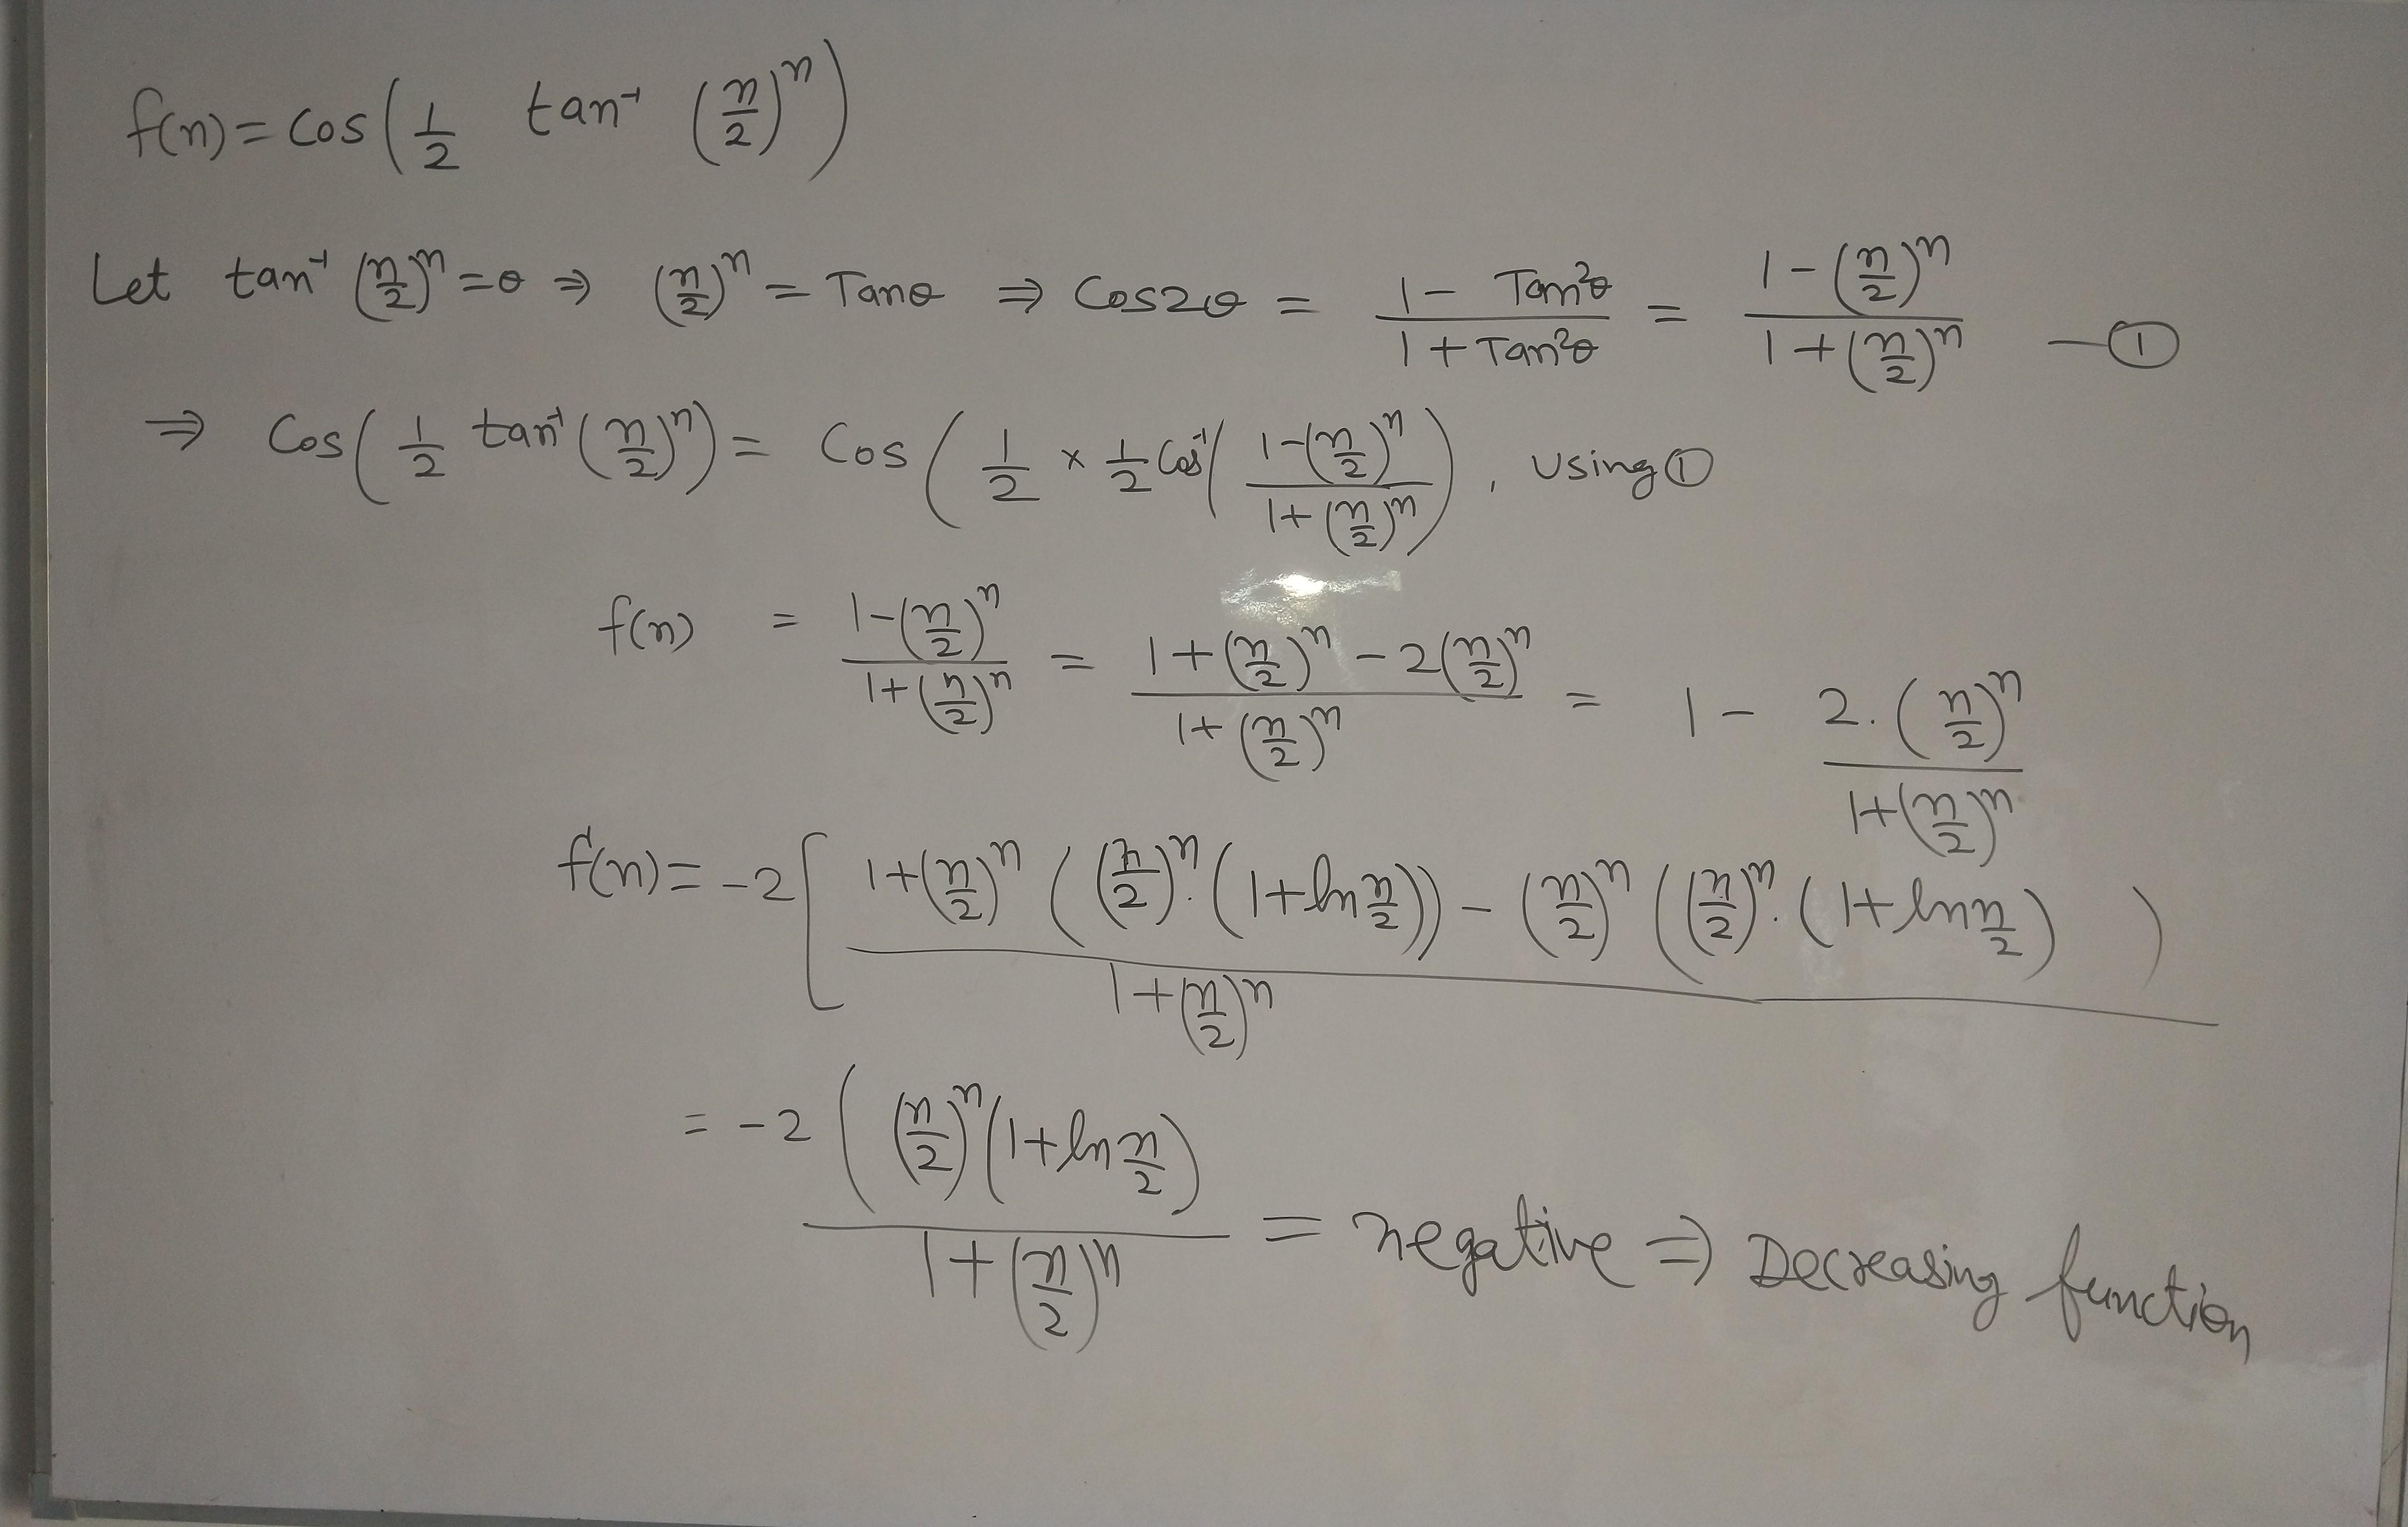 f(n) = cos(1/2 tan⁻¹ (n/2)ⁿ)
Let tan⁻¹ (n/2)ⁿ = θ ⇒ (n/2)ⁿ = Tanθ ⇒ Cos2θ = (1 - Tan²θ)/(1 + Tan²θ) = (1 - (n/2)ⁿ)/(1 + (n/2)ⁿ) — ①
⇒ Cos(1/2 tan⁻¹ (n/2)ⁿ) = Cos(1/2 × 1/2 Cos⁻¹((1 - (n/2)ⁿ)/(1 + (n/2)ⁿ)), using ①
f(n) = (1 - (n/2)ⁿ)/(1 + (n/2)ⁿ) = (1 + (n/2)ⁿ - 2(n/2)ⁿ)/(1 + (n/2)ⁿ) = 1 - 2.(n/2)ⁿ/(1 + (n/2)ⁿ)
f'(n) = -2[1 + (n/2)ⁿ ((n/2)ⁿ.(1 + ln n/2)) - (n/2)ⁿ ((n/2)ⁿ.(1 + ln n/2) )/(1 + (n/2)ⁿ)
= -2((n/2)ⁿ(1 + ln n/2)/(1 + (n/2)ⁿ) = negative ⇒ Decreasing function